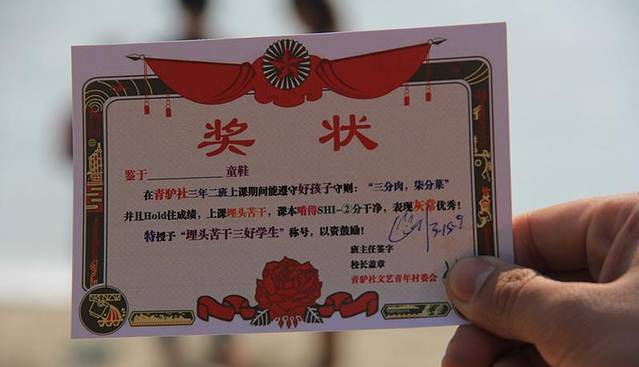 奖 状
鉴于 童鞋
在青驴社三年二班上课期间能遵守好孩子守则：“三分肉，柒分菜”
并且Hold住成绩，上课埋头苦干，课本啃得SHI-②分干净，表现灰常优秀！
特授予“埋头苦干三好学生”称号，以资鼓励！
班主任签字
校长盖章
青驴社文艺青年村委会